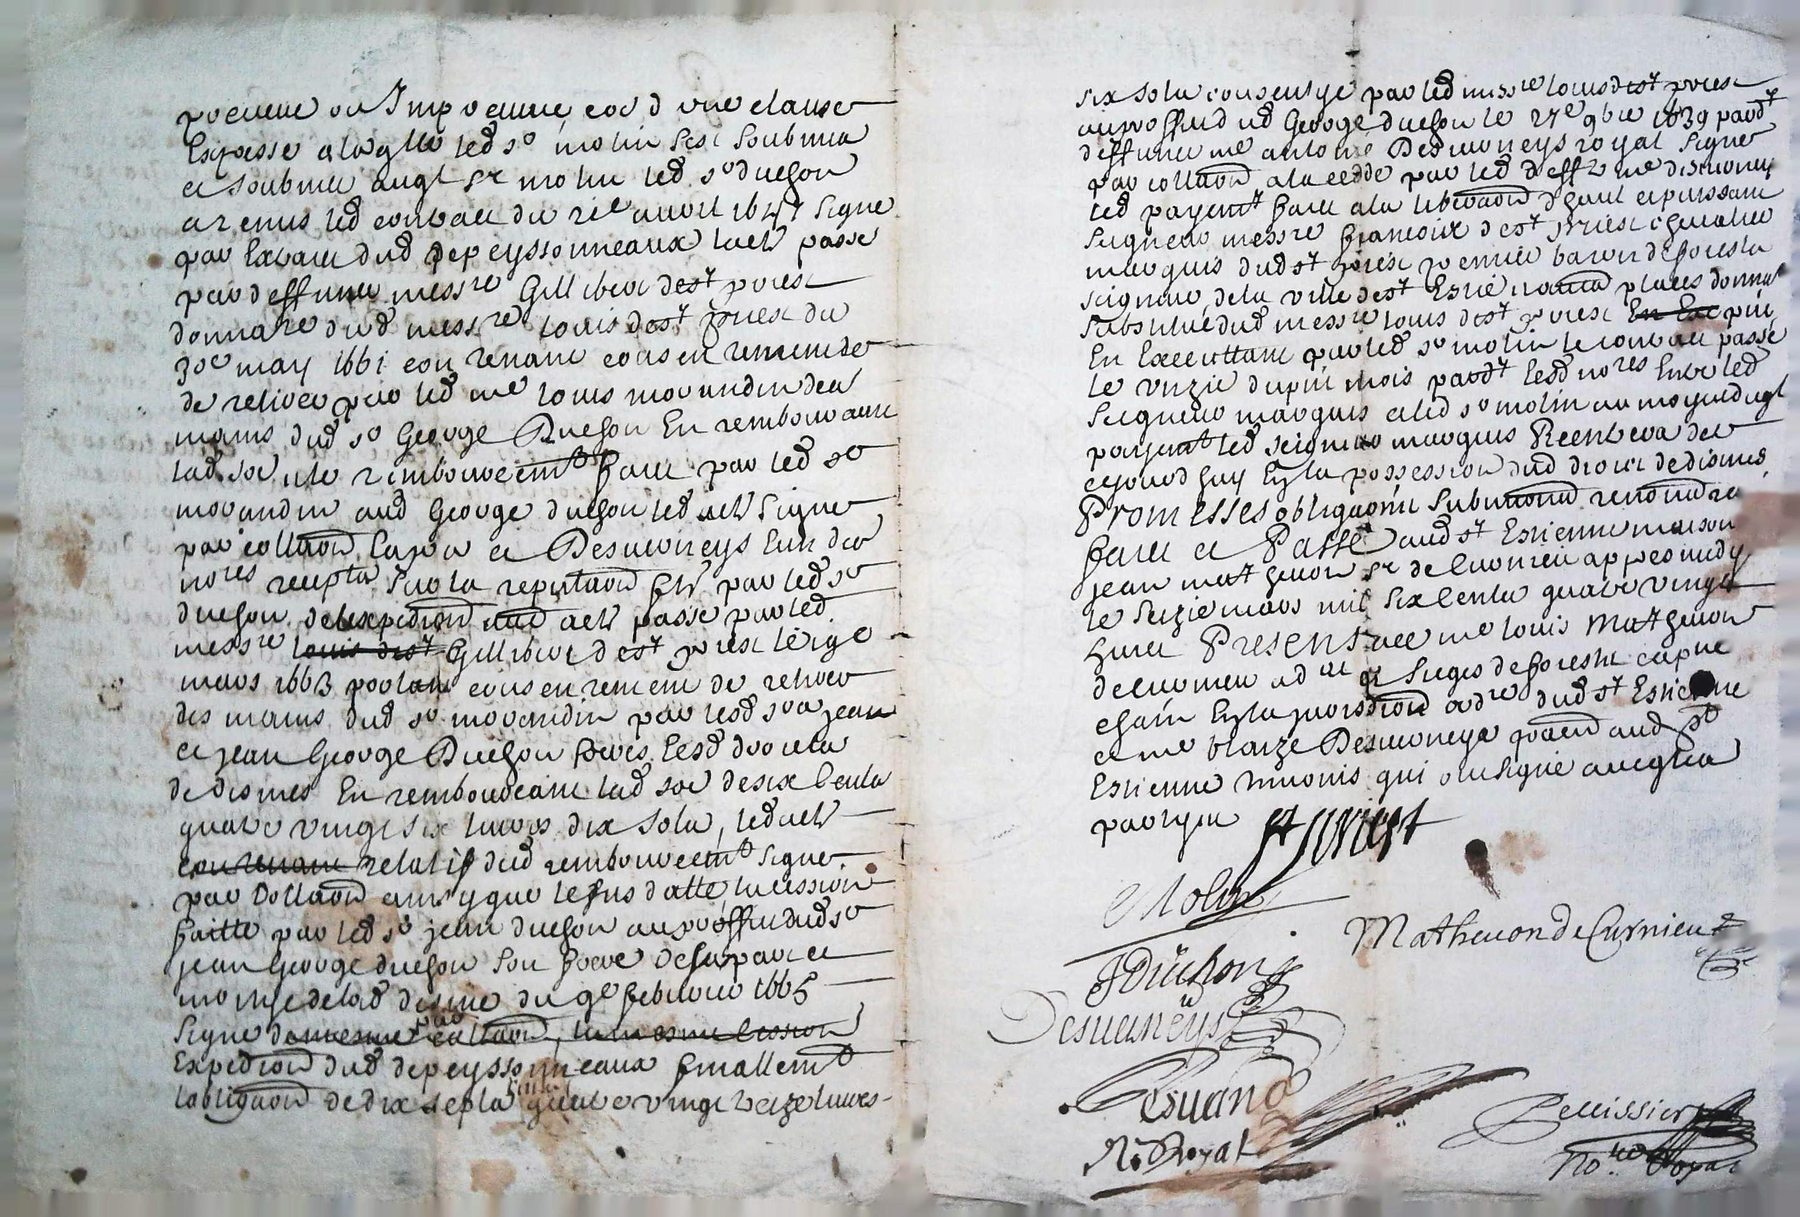 preveue ou Impreveue et d'une clause
Expresse a laqlle led sr molin sest soubmis
et soubmet augl sr molin led sr duchon
a remis led contract du avril signe
par Extraict dud depeyssonneaux lacte passe
par deffunct messre Gillibert de st priest
donnare dud messre louis de st priest du
30e may 1661 contenant consentement
de retirer par led me louis morandin des
mains dud sr George Duchon En remboursant
lad soe et le remboursement faict par led sr
morandin aud George duchon led acte signe
par collaon et Desverneys lun des
nores recepta sur la faite par led sr
duchon de lexpedion dud acte passe par led
messre louis de st Gillibert de st priest le
mars 1663 portant consentement de retirer
des mains dud sr morandin par lesd srs jean
et jean George Duchon freres lesd droicts
de dismes En remboursant lad soe de six Cents
quatre vingt six livres dix sols, led acte
contenant relatif dud remboursement signe
par Collaon ainsy que le sus datte, la cession
faitte par led sr jean duchon au proffit dud sr
jean George duchon son frere de sa part et
moitye de lad disme du 9e febvrier 1665
signe de mesme par collaon, la mesme Cession
Expedion dud depeyssonneaux finallemt
lobligaon de dix sept quatre vingt treize livres
six sols consentye par led messre louis de st priest
au proffit dud George duchon le 27e 9bre 1639 pardt
deffunct me antoine Desverneys royal signe
par collaon a la cedde par led deff me desverneys
led payemt faict a la liberaon d'hault et puissant
seigneur messre francois de st priest chevalier
marquis dud st priest premier baron de forests
seigneur de la ville de st Estienne places donnare
substitué dud messre louis de st priest En Exe prnt
En Executtant par led sr molin le contract passe
le unzie du pnt mois pardt lesd nores Entre led
seigneur marquis et led sr molin au moyen dugl
payemt led seigneur marquis Reentrera des
ce jourdhuy En la possession dud droict de dismes
Promesses obligaons submaons renonaons
faict et Passé aud st Estienne maison
jean mathevon sr de Curnieu appres midy
le seizie mars mil six Cents quatre vingt
huict Presents me louis Mathevon
de Curnieu adat Sieges de forests capne
chain En la jurisdion ordre dud st Estienne
et me blaize Desverneys praen aud st
Estienne tesmoins qui ont signe avec les
partyes st priest
Molin
Mathevon de Curnieu
JDuchon
Desverneys
Esuand
No Royal
Pellissier
Nore Royal